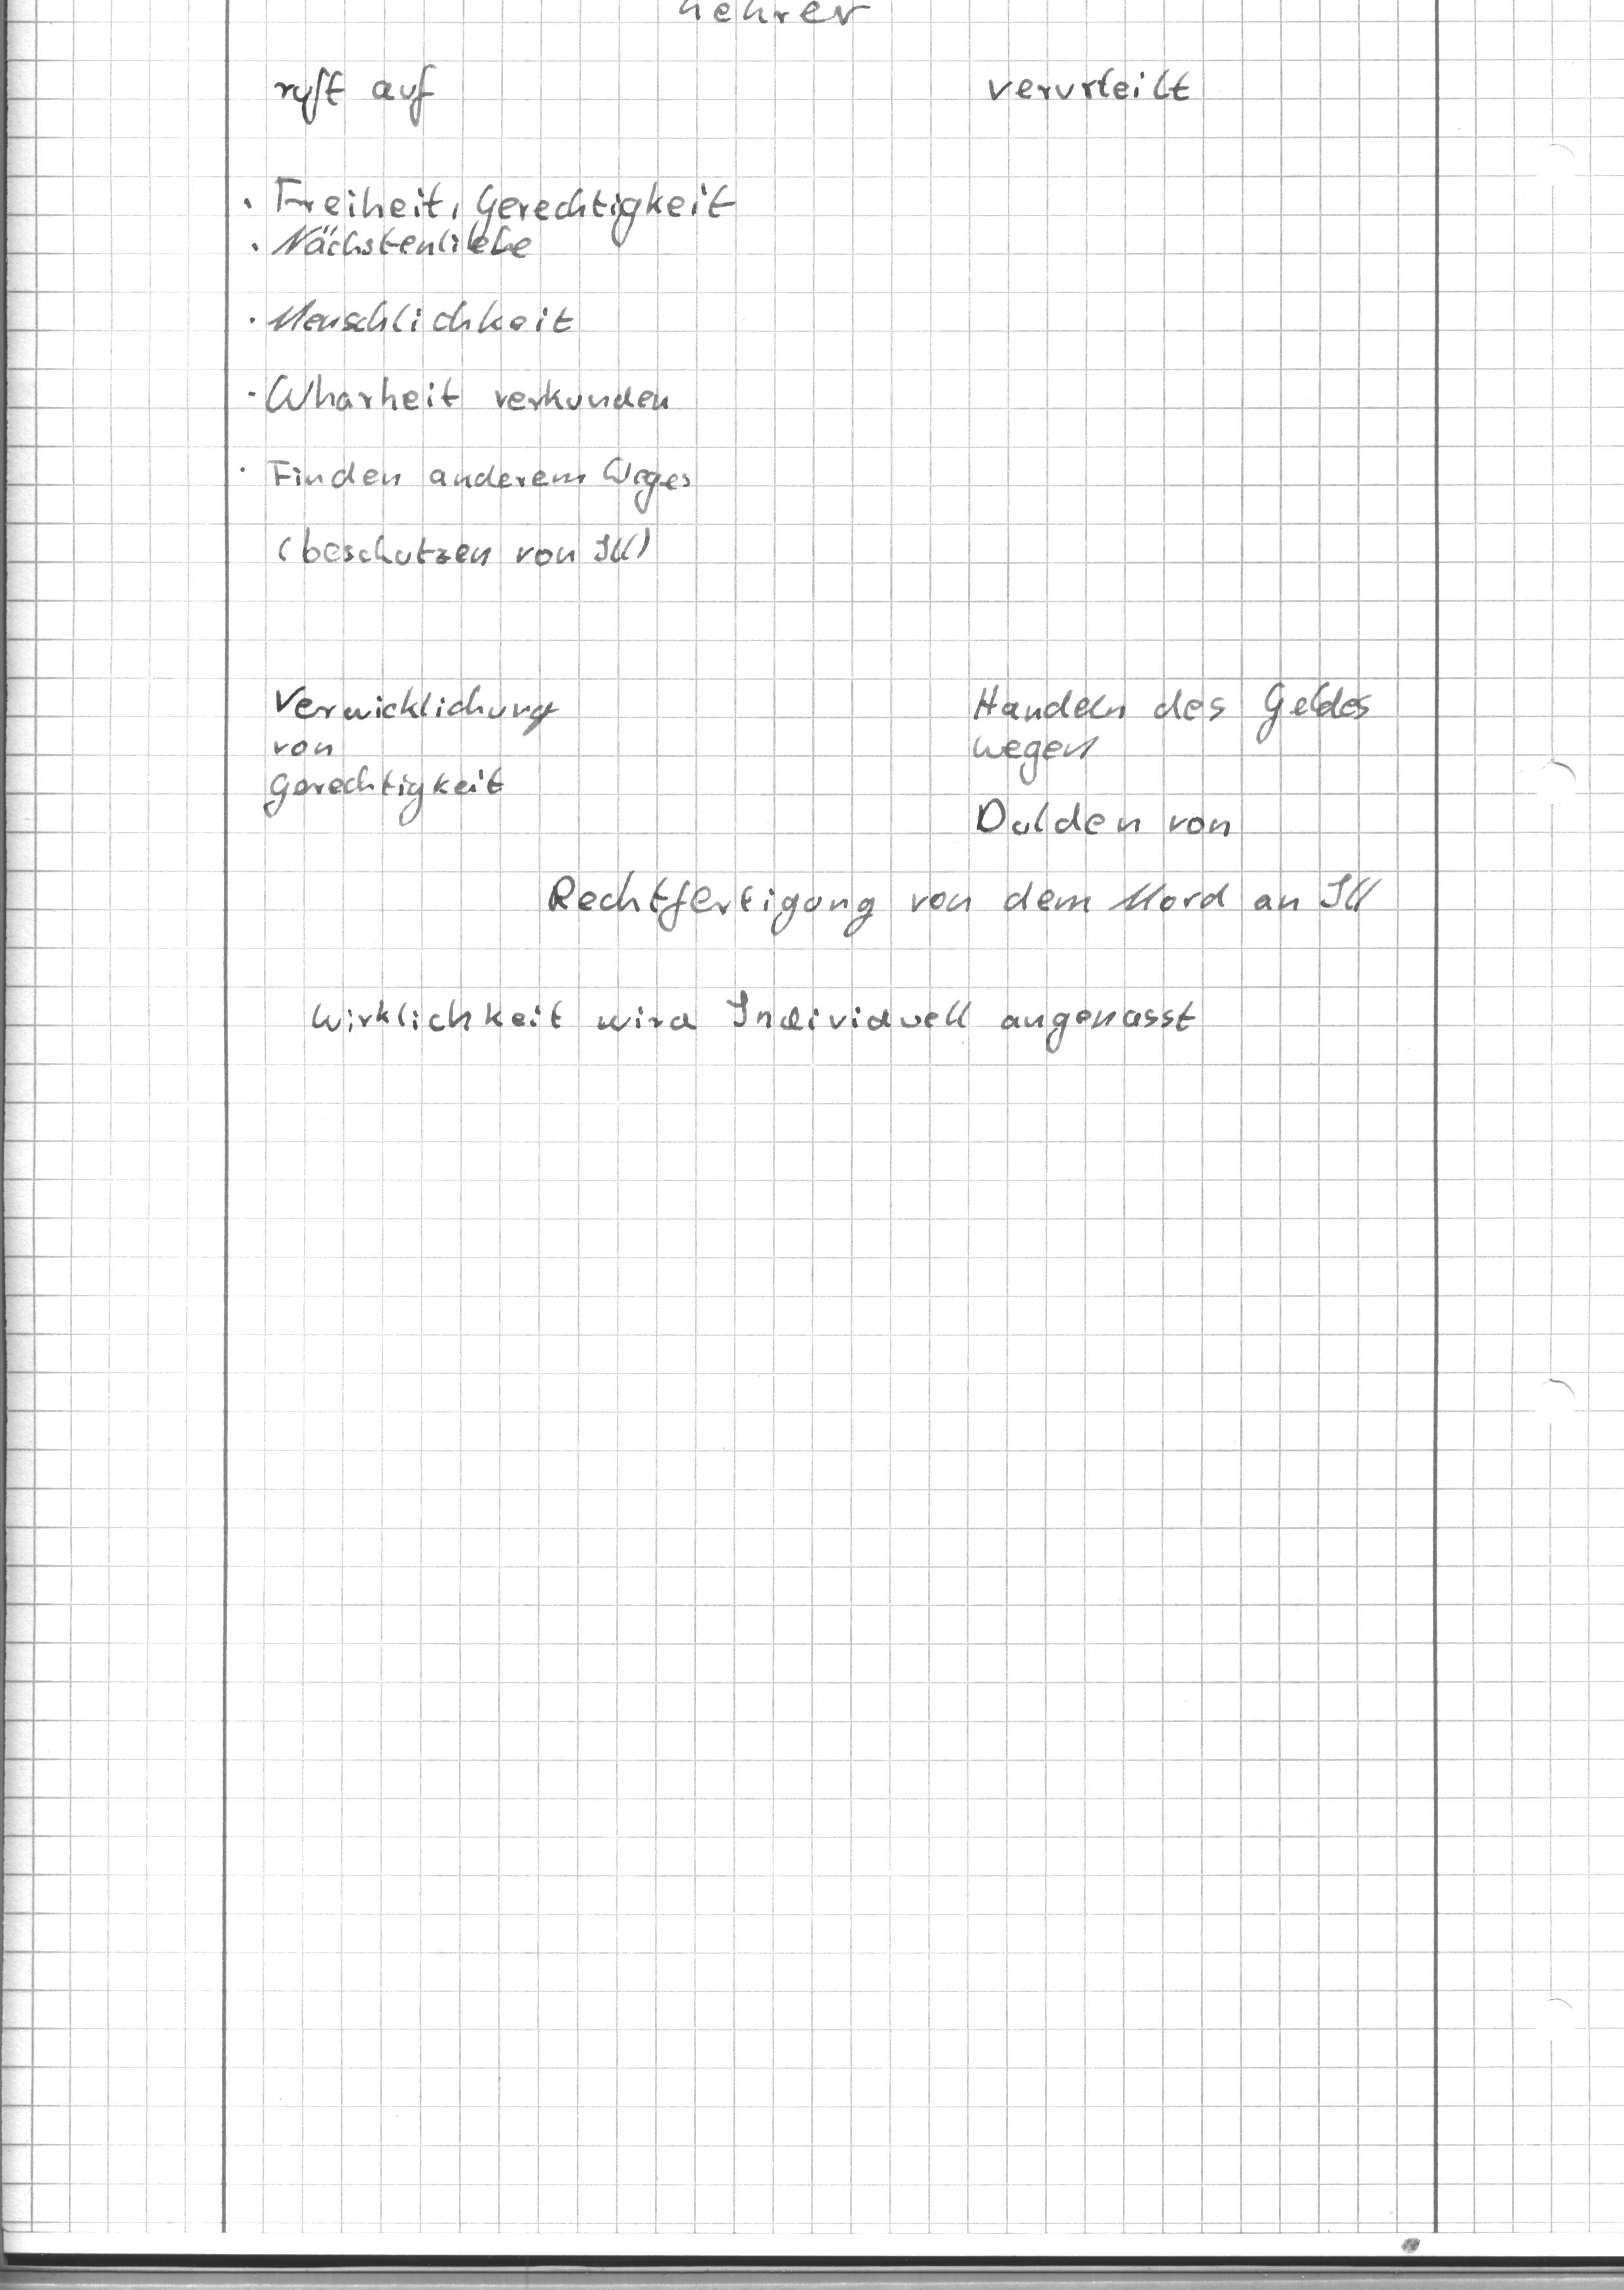 Lehrer
ruft auf
verurteilt
· Freiheit, Gerechtigkeit
· Nächstenliebe
· Menschlichkeit
· Wharheit verkunden
· Finden anderem Weges
(beschutzen von Ill)
Verwicklichung
von
Gerechtigkeit
Handeln des Geldes
wegen
Dulden von
Rechtfertigung von dem Mord an Ill
Wirklichkeit wird Individuell angepasst